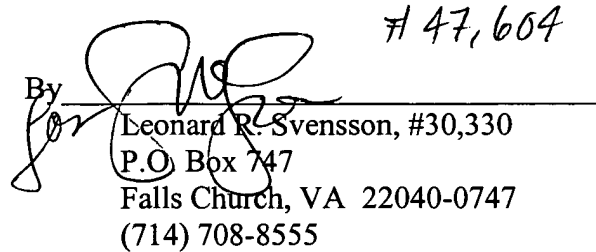 # 47,604
By
for
Leonard R. Svensson, #30,330
P.O. Box 747
Falls Church, VA 22040-0747
(714) 708-8555